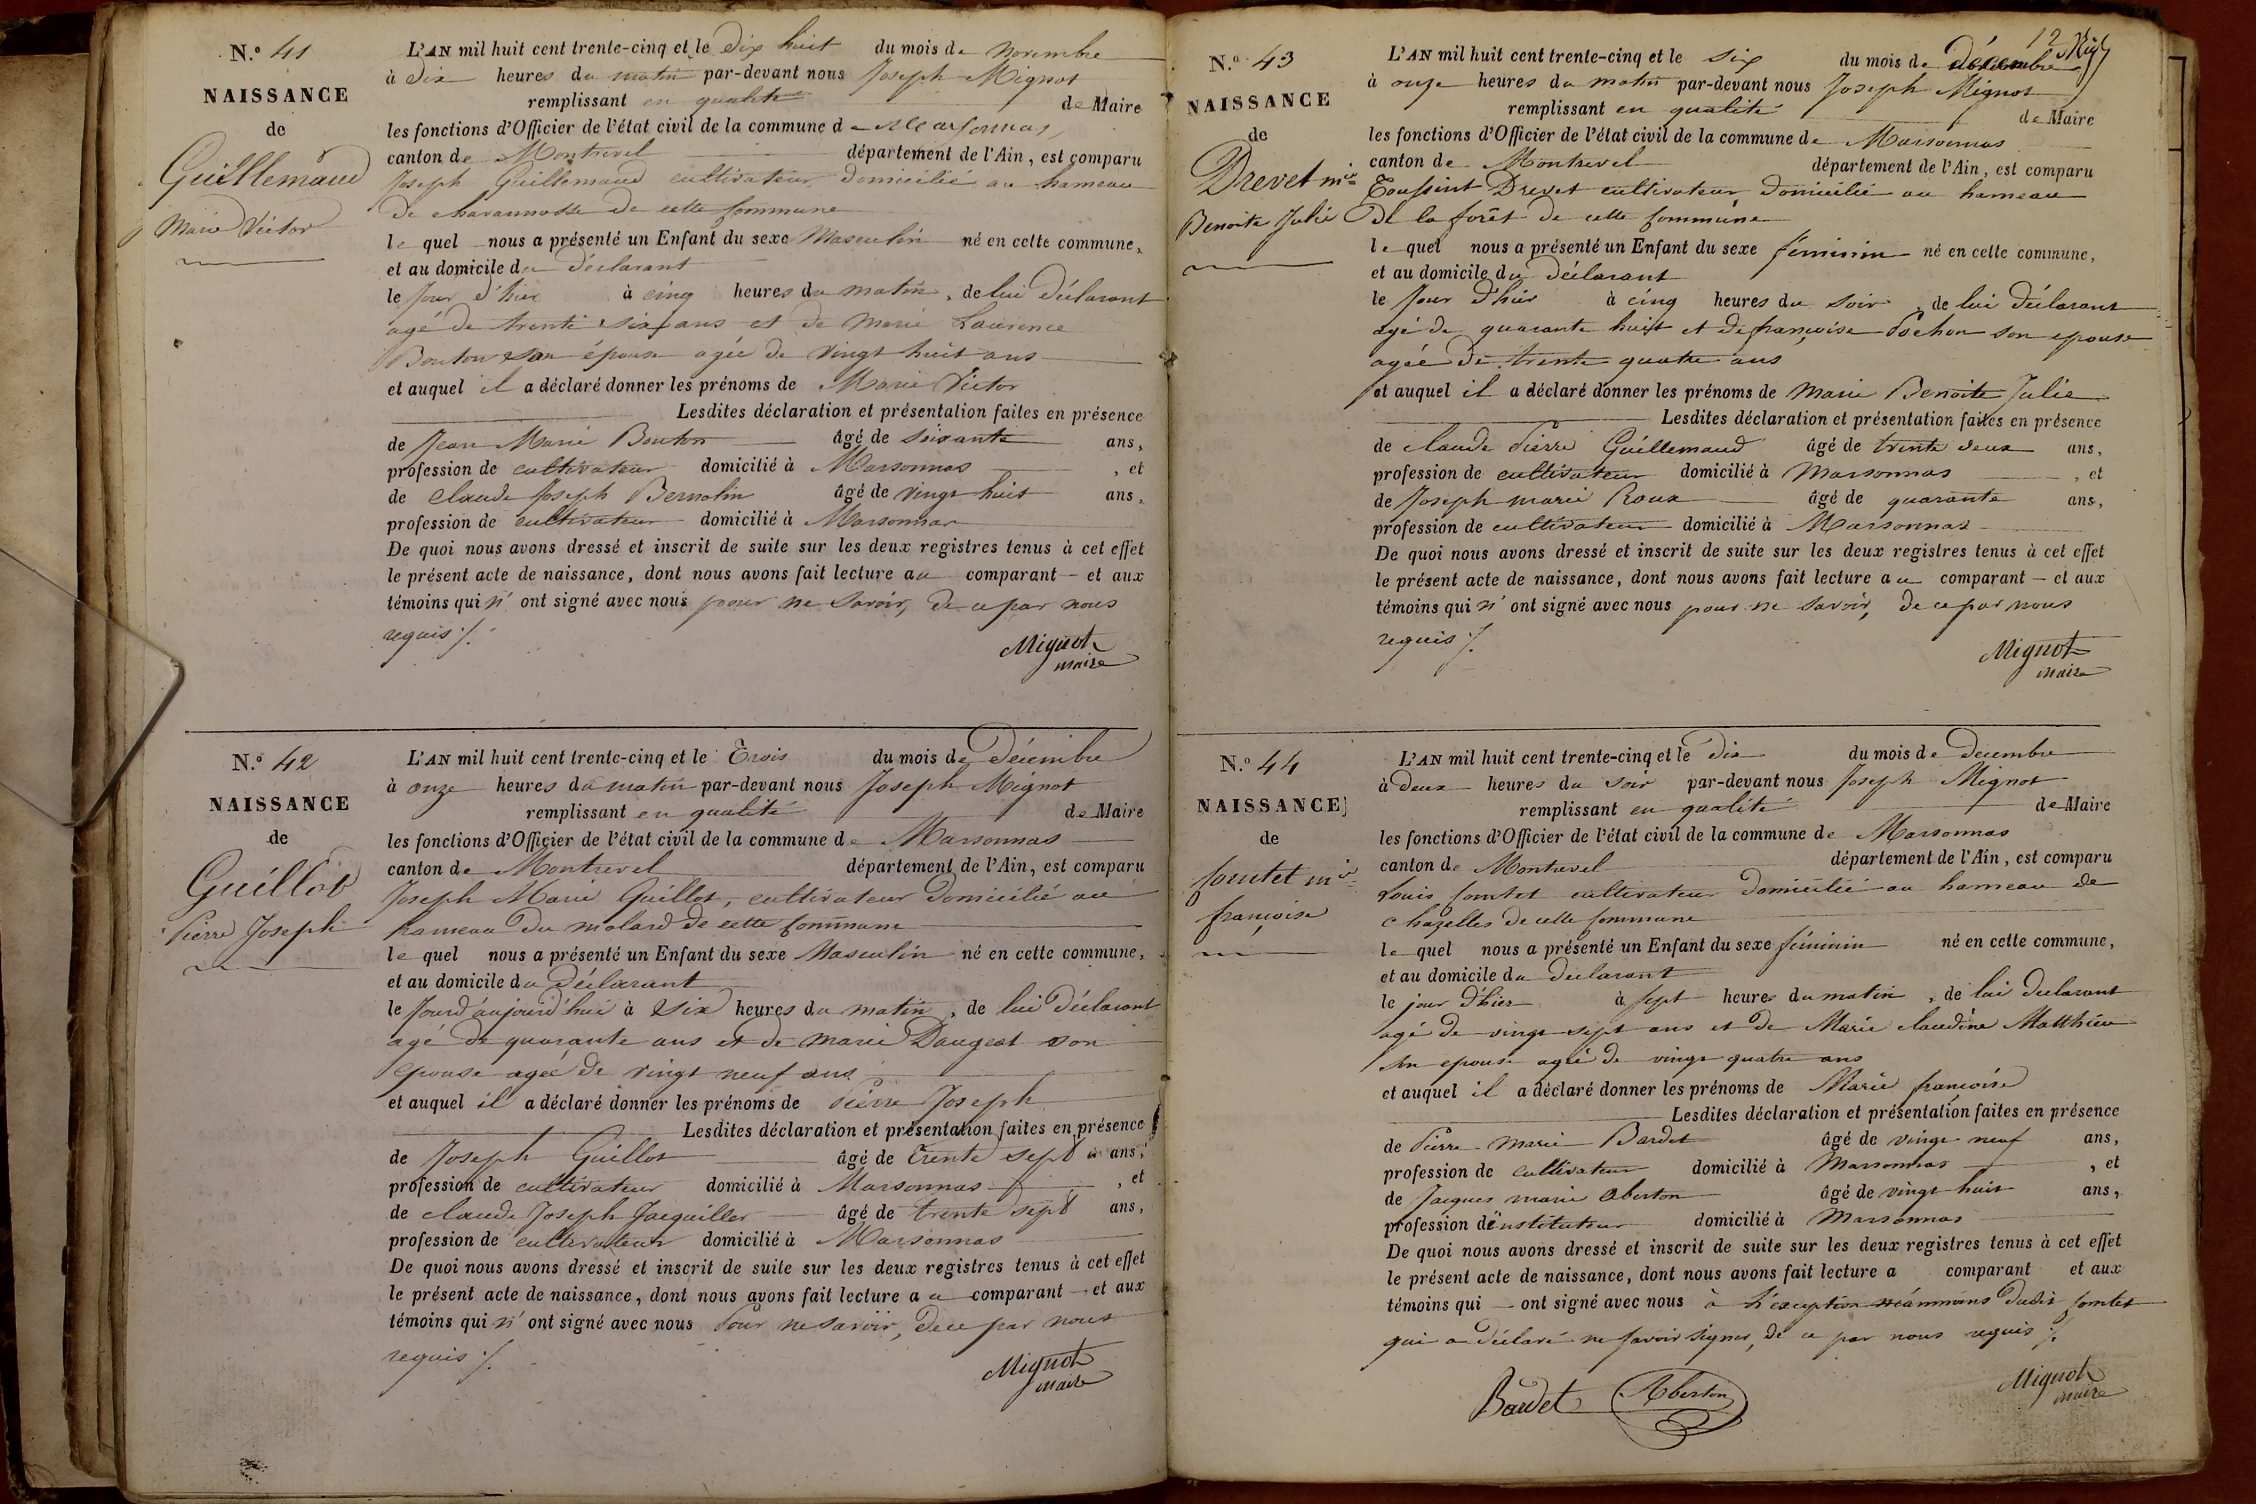 N.° 41
NAISSANCE
de
Guillemaud
Marie Victor
L'AN mil huit cent trente-cinq et le dix huit du mois de novembre
à dix heures du matin par-devant nous Joseph Mignot
remplissant en qualité de Maire
les fonctions d'Officier de l'état civil de la commune de Marsonnas
canton de Montrevel département de l'Ain, est comparu
Joseph Guillemaud cultivateur domicilié au hameau
de chavannosse de cette commune
le quel nous a présenté un Enfant du sexe Masculin né en cette commune,
et au domicile du déclarant
le jour d'hier à cinq heures du matin, de lui déclarant
agé de trente six ans et de Marie Laurence
Bouton son épouse agée de vingt huit ans
et auquel il a déclaré donner les prénoms de Marie Victor
Lesdites déclaration et présentation faites en présence
de Jean Marie Bouton âgé de soixante ans,
profession de cultivateur domicilié à Marsonnas, et
de Claude Joseph Bernolin âgé de vingt huit ans,
profession de cultivateur domicilié à Marsonnas
De quoi nous avons dressé et inscrit de suite sur les deux registres tenus à cet effet
le présent acte de naissance, dont nous avons fait lecture au comparant et aux
témoins qui n'ont signé avec nous pour ne savoir, de ce par nous
requis ./.
Mignot
maire
N.° 42
NAISSANCE
de
Guillot
Pierre Joseph
L'AN mil huit cent trente-cinq et le Trois du mois de Décembre
à onze heures du matin par-devant nous Joseph Mignot
remplissant en qualité de Maire
les fonctions d'Officier de l'état civil de la commune de Marsonnas
canton de Montrevel département de l'Ain, est comparu
Joseph Marie Guillot, cultivateur domicilié au
hameau du molard de cette commune
le quel nous a présenté un Enfant du sexe Masculin né en cette commune,
et au domicile du déclarant
le jourd'aujourd'hui à six heures du matin, de lui déclarant
agé de quarante ans et de marie Daugeat son
epouse agée de vingt neuf ans
et auquel il a déclaré donner les prénoms de Pierre Joseph
Lesdites déclaration et présentation faites en présence
de Joseph Guillot âgé de trente sept ans,
profession de cultivateur domicilié à Marsonnas, et
de claude Joseph Jacquiller âgé de trente sept ans,
profession de cultivateur domicilié à Marsonnas
De quoi nous avons dressé et inscrit de suite sur les deux registres tenus à cet effet
le présent acte de naissance, dont nous avons fait lecture au comparant et aux
témoins qui n'ont signé avec nous Pour ne savoir, de ce par nous
requis ./.
Mignot
maire
12
N.° 43
NAISSANCE
de
Drevet mie
Benoite Julie
L'AN mil huit cent trente-cinq et le six du mois de décembre
à onze heures du matin par-devant nous Joseph Mignot
remplissant en qualité de Maire
les fonctions d'Officier de l'état civil de la commune de Marsonnas
canton de Montrevel département de l'Ain, est comparu
Toussint Drevet cultivateur domicilié au hameau
de la forêt de cette commune
le quel nous a présenté un Enfant du sexe féminin né en cette commune,
et au domicile du déclarant
le jour d'hier à cinq heures du soir, de lui déclarant
agé de quarante huit et de françoise Pochon son epouse
agée de trente quatre ans
et auquel il a déclaré donner les prénoms de Marie Benoite Julie
Lesdites déclaration et présentation faites en présence
de claude Pierre Guillemaud âgé de trente deux ans,
profession de cultivateur domicilié à Marsonnas, et
de Joseph marie Roux âgé de quarante ans,
profession de cultivateur domicilié à Marsonnas
De quoi nous avons dressé et inscrit de suite sur les deux registres tenus à cet effet
le présent acte de naissance, dont nous avons fait lecture au comparant et aux
témoins qui n'ont signé avec nous pour ne savoir, de ce par nous
requis ./.
Mignot
maire
N.° 44
NAISSANCE
de
Comtet mie
françoise
L'AN mil huit cent trente-cinq et le dix du mois de decembre
à deux heures du soir par-devant nous Joseph Mignot
remplissant en qualité de Maire
les fonctions d'Officier de l'état civil de la commune de Marsonnas
canton de Montrevel département de l'Ain, est comparu
Louis Comtet cultivateur domicilié au hameau de
chazelles de cette commune
le quel nous a présenté un Enfant du sexe féminin né en cette commune,
et au domicile du declarant
le jour d'hier à sept heures du matin, de lui declarant
agé de vingt sept ans et de Marie claudine Matthieu
son epouse agée de vingt quatre ans
et auquel il a déclaré donner les prénoms de Marie françoise
Lesdites déclaration et présentation faites en présence
de Pierre marie Bardet âgé de vingt neuf ans,
profession de cultivateur domicilié à Marsonnas, et
de Jacques marie Oberton âgé de vingt huit ans,
profession d'instituteur domicilié à Marsonnas
De quoi nous avons dressé et inscrit de suite sur les deux registres tenus à cet effet
le présent acte de naissance, dont nous avons fait lecture a comparant et aux
témoins qui ont signé avec nous à l'exception néanmoins dudit Comtet
qui a déclaré ne savoir signer, de ce par nous requis ./.
Bardet Oberton
Mignot
maire